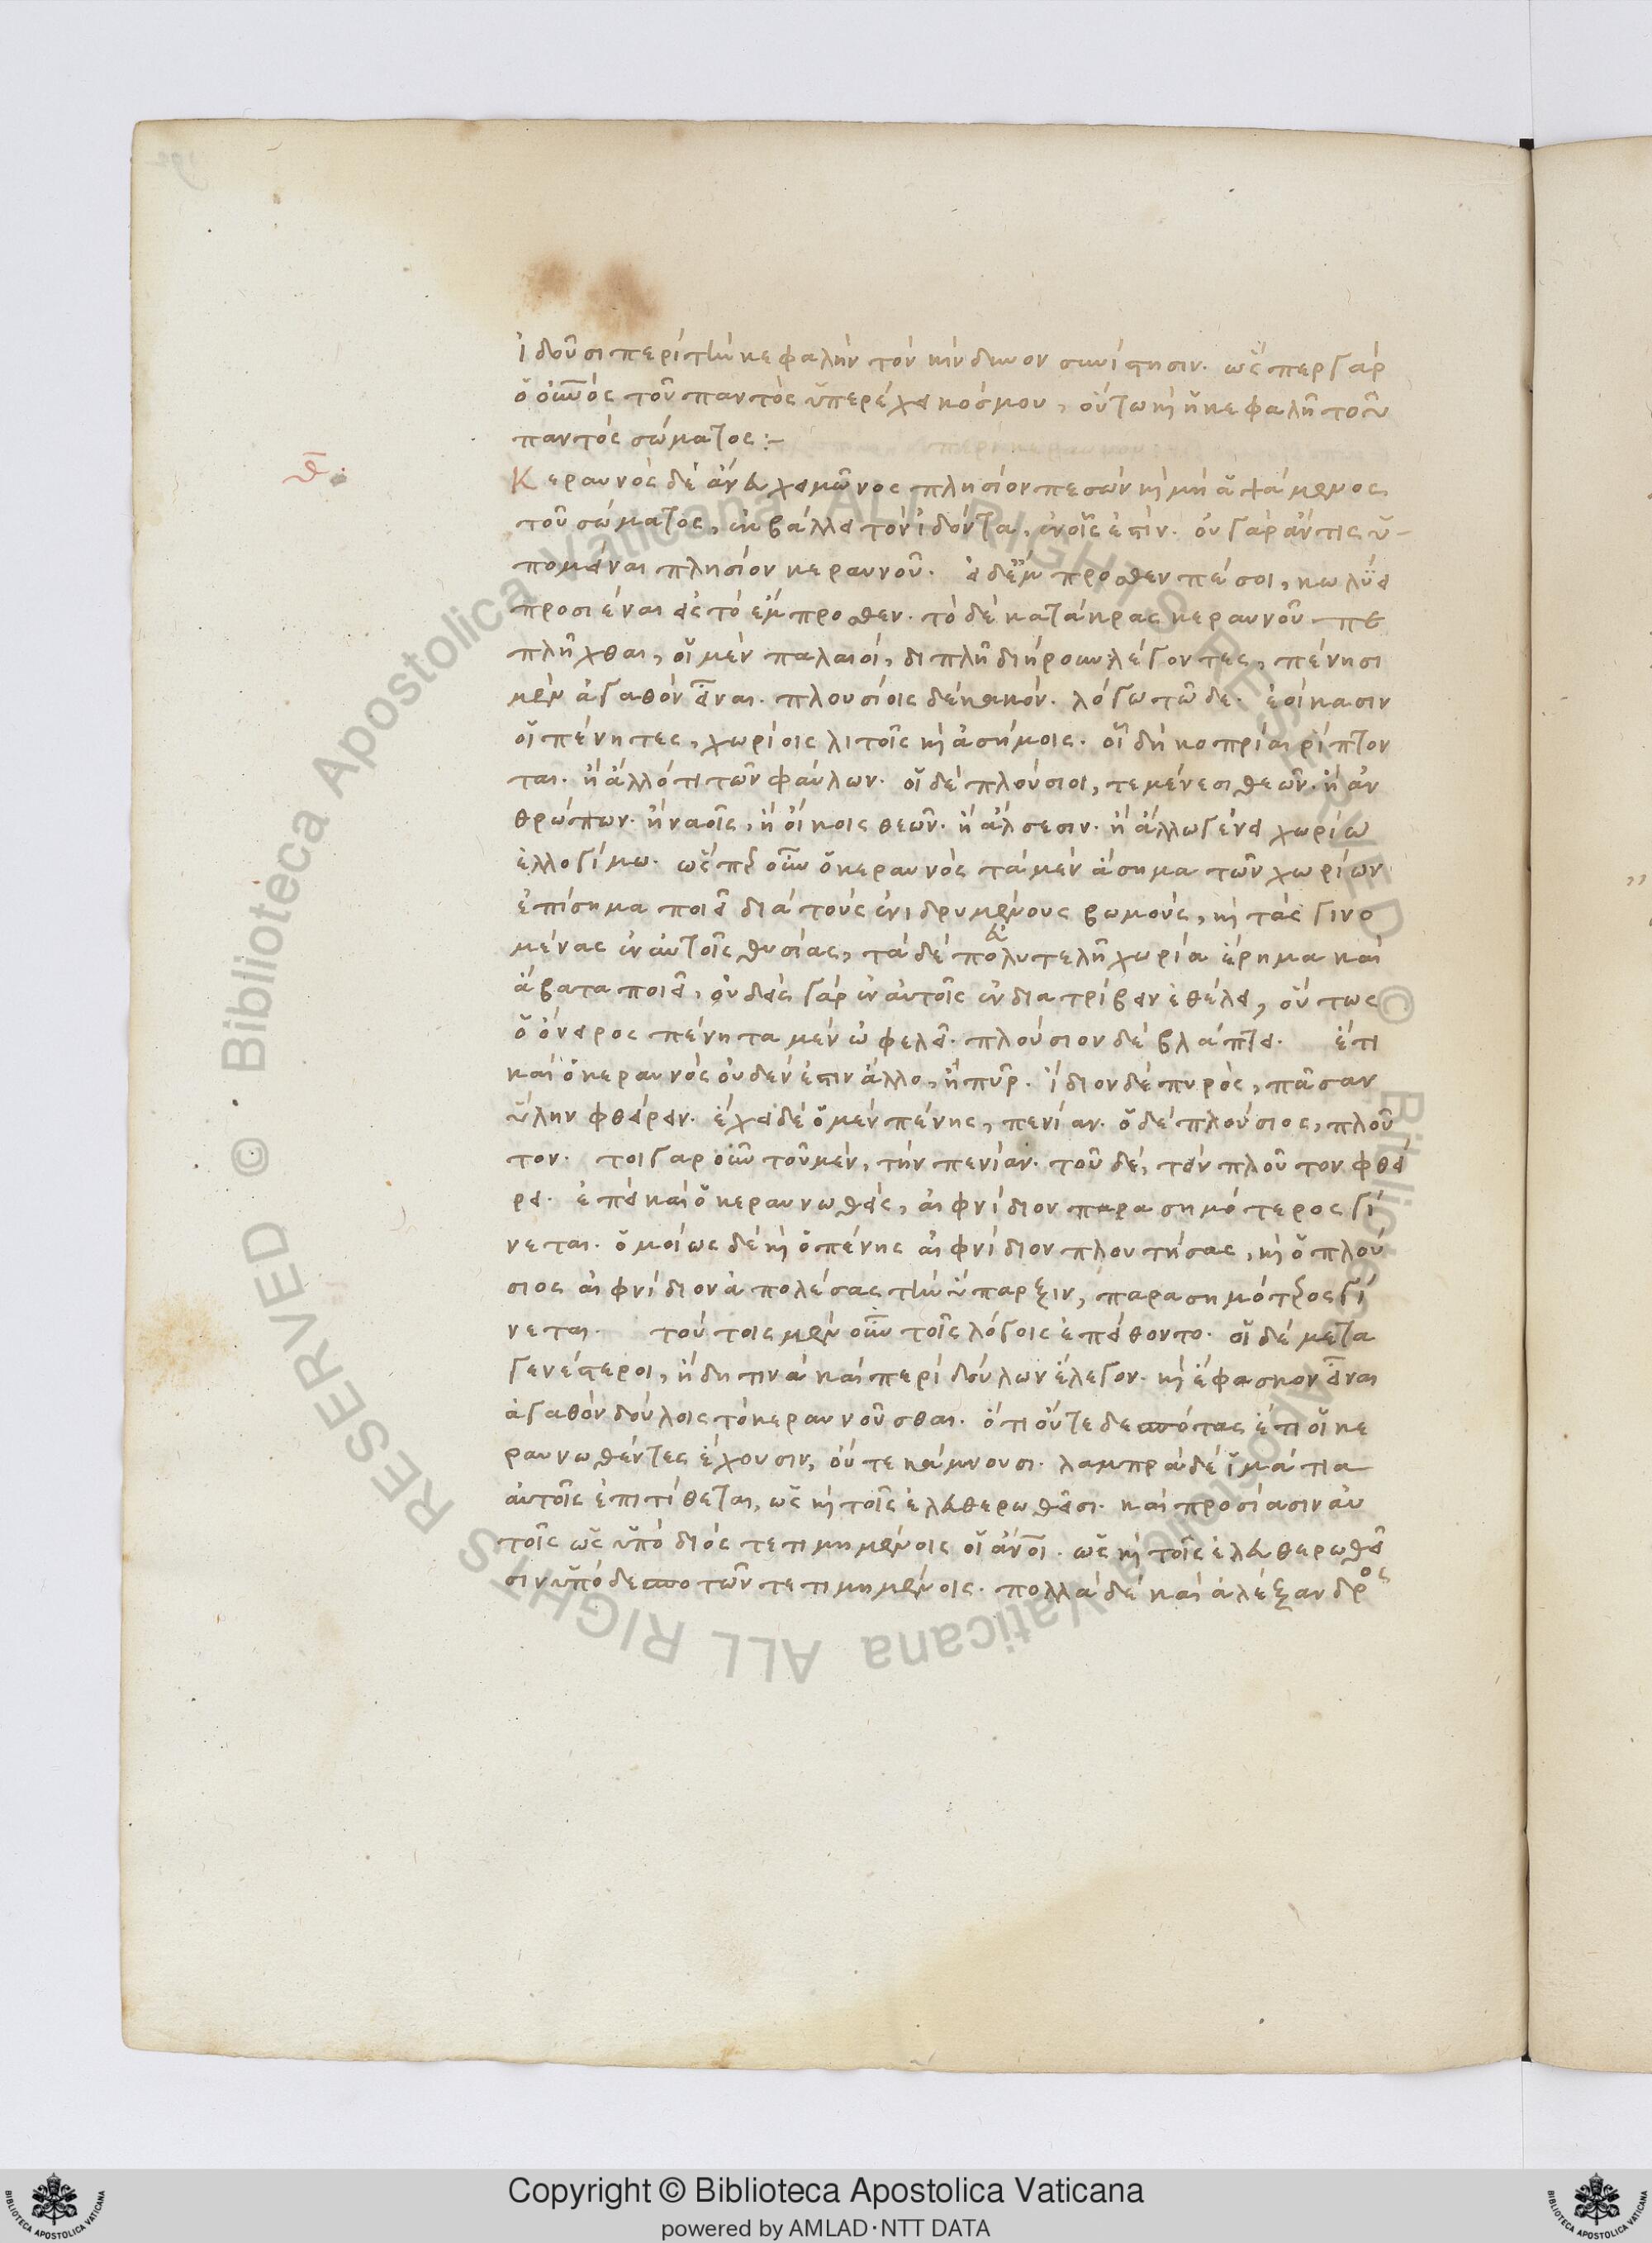 ἰδοῦσι περὶ τὴν κεφαλὴν τὸν κίνδυνον συνίστησιν. ὥσπερ γὰρ
ὁ οὐνὸς τοῦ παντὸς ὑπερέχει κόσμου, οὕτω καὶ ἡ κεφαλὴ τοῦ
παντὸς σώματος:-
θ.
Κεραυνὸς δὲ ἄνευ χειμῶνος πλησίον πεσὼν καὶ μὴ ἁψάμενος
τοῦ σώματος, ἐκβάλλει τὸν ἰδόντα, ἐν οἷς ἐστίν. οὐ γὰρ ἄν τις ὑ-
πομεῖναι πλησίον κεραυνοῦ. εἰ δ' ἔμπροσθεν πέσοι, κωλύει
προσιέναι εἰς τὸ ἔμπροσθεν. τὸ δὲ κατάκρας κεραυνοῦ πε
πλῆχθαι, οἱ μὲν παλαιοὶ, διπλῇ διῄρουν λέγοντες, πένησι
μὲν ἀγαθὸν εἶναι. πλουσίοις δὲ κακόν. λόγω τῶδε. ἐοίκασιν
οἱ πένητες, χωρίοις λιτοῖς καὶ ἀσήμοις. οἷ δὴ κοπρίαι ῥίπτον
ται. ἢ ἄλλό τι τῶν φαύλων. οἱ δὲ πλούσιοι, τεμένεσι θεῶν. ἢ ἀν
θρώπων. ἢ ναοῖς, ἢ οἴκοις θεῶν. ἢ ἄλσεσιν. ἢ ἄλλω γένει χωρίω
ἐλλογίμω. ὥσπερ οὖν ὁ κεραυνὸς τὰ μὲν ἄσημα τῶν χωρίων
ἐπίσημα ποιεῖ διὰ τοὺς ἐνιδρυμένους βωμοὺς, καὶ τὰς γινο
μένας ἐν αὐτοῖς θυσίας, τὰ δὲ πολυτελῆ χωρία ἔρημα καὶ
ἄβατα ποιεῖ, οὐδεὶς γὰρ ἐν αὐτοῖς ἐνδιατρίβειν ἐθέλει, οὕτως
ὁ ὄνειρος πένητα μὲν ὠφελεῖ. πλούσιον δὲ βλάπτει. ἔτι
καὶ ὁ κεραυνὸς οὐδέν ἐστιν ἄλλο, ἢ πῦρ. ἴδιον δὲ πυρὸς, πᾶσαν
ὕλην φθείρειν. ἔχει δὲ ὁ μὲν πένης, πενίαν. ὁ δὲ πλούσιος, πλοῦ
τον. τοιγαροῦν τοῦ μὲν, τὴν πενίαν. τοῦ δὲ, τὸν πλοῦτον φθεί
ρει. ἐπεὶ καὶ ὁ κεραυνωθεὶς, αἰφνίδιον παρασημότερος γί
νεται. ὁμοίως δὲ καὶ ὁ πένης αἰφνίδιον πλουτήσας, καὶ ὁ πλού
σιος αἰφνίδιον ἀπολέσας τὴν ὕπαρξιν, παρασημότερος γί
νεται. τούτοις μὲν οὖν τοῖς λόγοις ἐπείθοντο. οἱ δὲ μετα
γενέστεροι, ἤδη τινὰ καὶ περὶ δούλων ἔλεγον. καὶ ἔφασκον εἶναι
ἀγαθὸν δούλοις τὸ κεραυνοῦσθαι. ὅτι οὔτε δεσπότας ἔτι οἱ κε
ραυνωθέντες ἔχουσιν, οὔτε κάμνουσι. λαμπρὰ δὲ ἱμάτια
αὐτοῖς ἐπιτίθεται, ὡς καὶ τοῖς ἐλευθερωθεῖσι. καὶ προσίασιν αὐ
τοῖς ὡς ὑπὸ διὸς τετιμημένοις οἱ ἄνοι. ὡς καὶ τοῖς ἐλευθερωθεῖ
σιν ὑπὸ δεσποτῶν τετιμημένοις. πολλὰ δὲ καὶ ἀλέξανδρος
© Biblioteca Apostolica Vaticana ALL RIGHTS RESERVED © Biblioteca Apostolica Vaticana ALL RIGHTS RESERVED
Copyright © Biblioteca Apostolica Vaticana
powered by AMLAD·NTT DATA
BIBLIOTECA APOSTOLICA VATICANA
BIBLIOTECA APOSTOLICA VATICANA